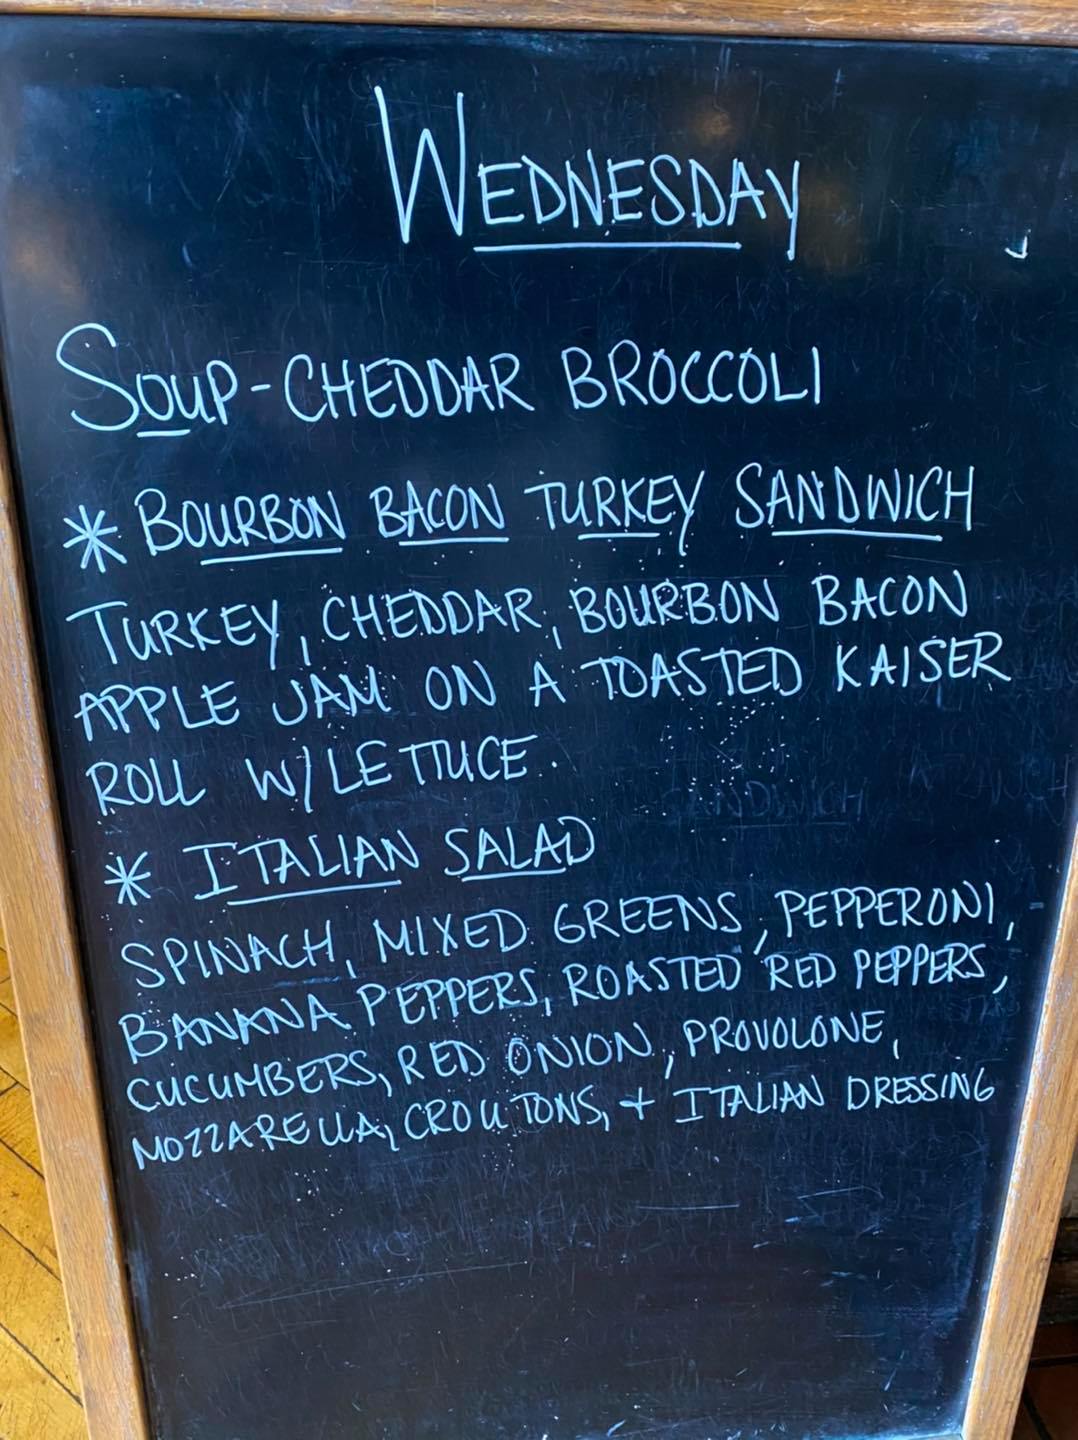 WEDNESDAY
SOUP-CHEDDAR BROCCOLI
* BOURBON BACON TURKEY SANDWICH
TURKEY, CHEDDAR, BOURBON BACON
APPLE JAM ON A TOASTED KAISER
ROLL W/LETTUCE.
* ITALIAN SALAD
SPINACH, MIXED GREENS, PEPPERONI,
BANANA PEPPERS, ROASTED RED PEPPERS,
CUCUMBERS, RED ONION, PROVOLONE,
MOZZARELLA, CROUTONS, + ITALIAN DRESSING